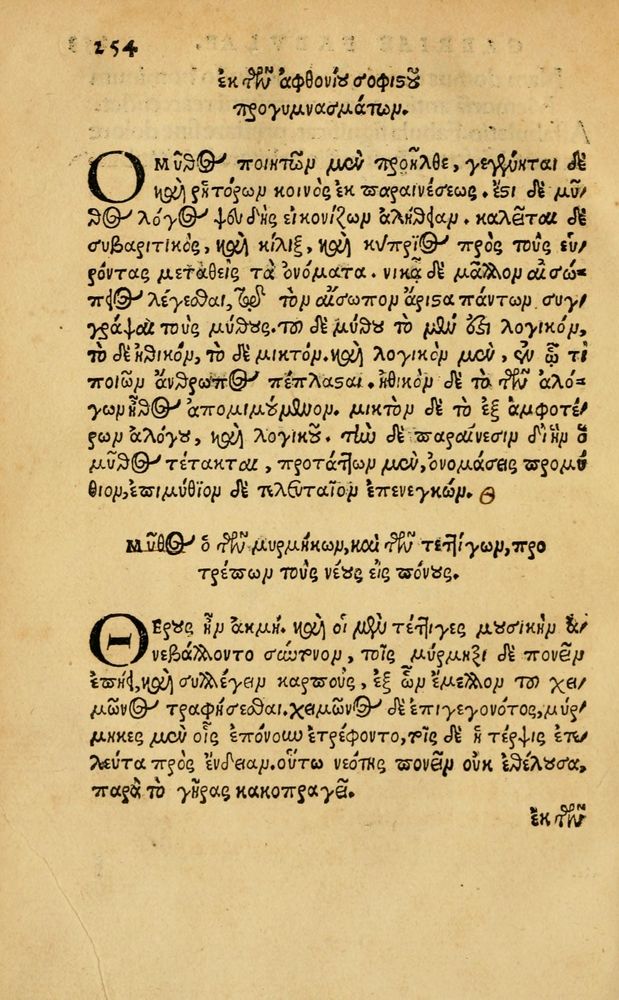 254
ἐκ τῶν ἀφθονίου σοφιστοῦ
προγυμνασμάτων.
Ο μῦθος ποιητῶν μὲν προῆλθε, γεγένηται δὲ
καὶ ῥητόρων κοινὸς ἐκ παραινέσεως. ἔστι δὲ μῦ-
θος λόγος ψευδὴς εἰκονίζων ἀλήθειαν. καλεῖται δὲ
συβαριτικὸς, καὶ κίλιξ, καὶ κύπριος πρὸς τοὺς εὑ-
ρόντας μεταθεὶς τὰ ὀνόματα. νικᾷ δὲ μᾶλλον αἰσώ-
πειος λέγεσθαι, τῷ τὸν αἴσωπον ἄριστα πάντων συγ-
γράψαι τοὺς μύθους. τοῦ δὲ μύθου τὸ μέν ἐστι λογικὸν,
τὸ δὲ ἠθικὸν, τὸ δὲ μικτόν. καὶ λογικὸν μὲν, ἐν ᾧ τι
ποιῶν ἄνθρωπος πέπλασται. ἠθικὸν δὲ τὸ τῶν ἀλό-
γων ἦθος ἀπομιμούμενον. μικτὸν δὲ τὸ ἐξ ἀμφοτέ-
ρων ἀλόγου, καὶ λογικοῦ. τὴν δὲ παραίνεσιν δι' ἣν ὁ
μῦθος τέτακται, προτάττων μὲν, ὀνομάσεις προμύ-
θιον, ἐπιμύθιον δὲ τελευταῖον ἐπενεγκών.
Μῦθος ὁ τῶν μυρμήκων, καὶ τῶν τεττίγων, προ
τρέπων τοὺς νέους εἰς πόνους.
Θέρους ἦν ἀκμή. καὶ οἱ μὲν τέττιγες μουσικὴν ἀ-
νεβάλλοντο σύντονον, τοῖς μύρμηξι δὲ πονεῖν
ἐπῄει, καὶ συλλέγειν καρποὺς, ἐξ ὧν ἔμελλον τοῦ χει-
μῶνος τραφήσεσθαι. χειμῶνος δὲ ἐπιγεγονότος, μύρ-
μηκες μὲν οἷς ἐπόνουν ἐτρέφοντο, τοῖς δὲ ἡ τέρψις ἐτε-
λεύτα πρὸς ἔνδειαν. οὕτω νεότης πονεῖν οὐκ ἐθέλουσα,
παρὰ τὸ γῆρας κακοπραγεῖ.
ἐκ τῶν